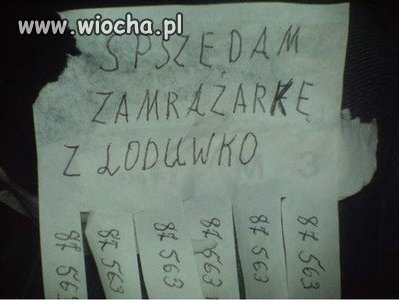 www.wiocha.pl
SPSZEDAM
ZAMRAŻARKĘ
Z LODUWKO
87 563
87 563
87 563
87 563
87 563
87 563